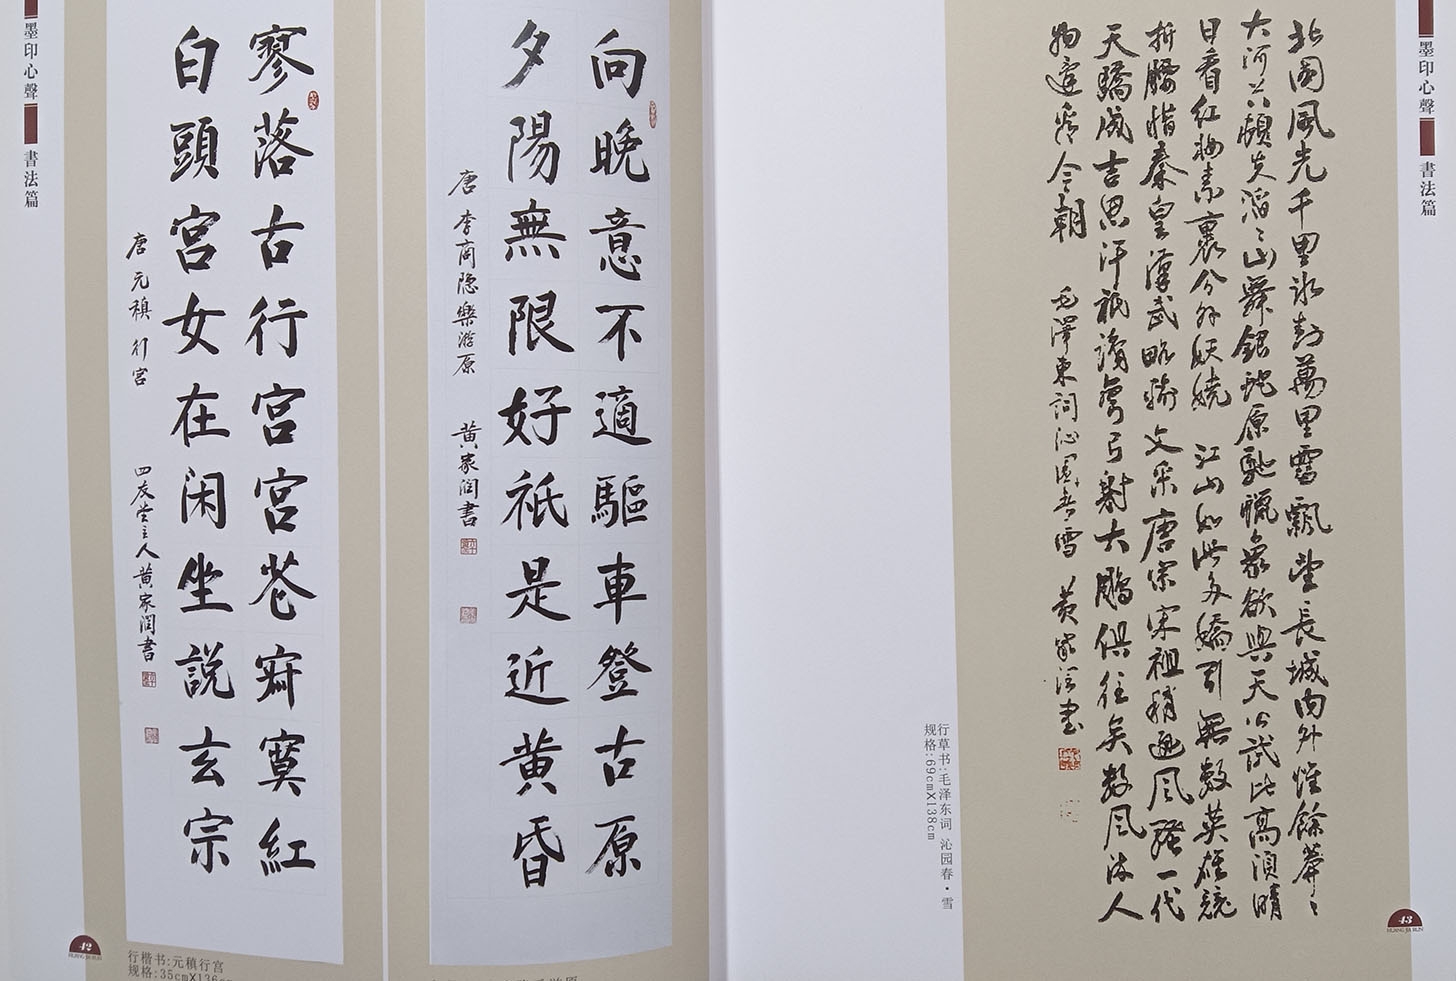 墨印心聲 書法篇
寥落古行宮宮花寂寞紅
白頭宮女在闲坐說玄宗
唐元稹行宮
四友堂主人黄家潤書
行楷书:元稹行宫
规格:35cmX136c
向晚意不適驅車登古原
夕陽無限好祇是近黄昏
唐李商隐樂游原
黄家潤書
42
墨印心聲 書法篇
北國風光千里冰封萬里雪飄望長城内外惟餘莽々
大河上下頓失滔々山舞銀蛇原馳蠟象欲與天公試比高須晴
日看紅妝素裹分外妖嬈 江山如此多嬌引無數英雄競
折腰惜秦皇漢武略輸文采唐宗宋祖稍遜風騷一代
天驕成吉思汗祇識彎弓射大鵰俱往矣數風流人
物還看今朝 毛澤東詞沁園春雪 黄家潤書
行草书:毛泽东词 沁园春·雪
规格:69cmX138cm
43